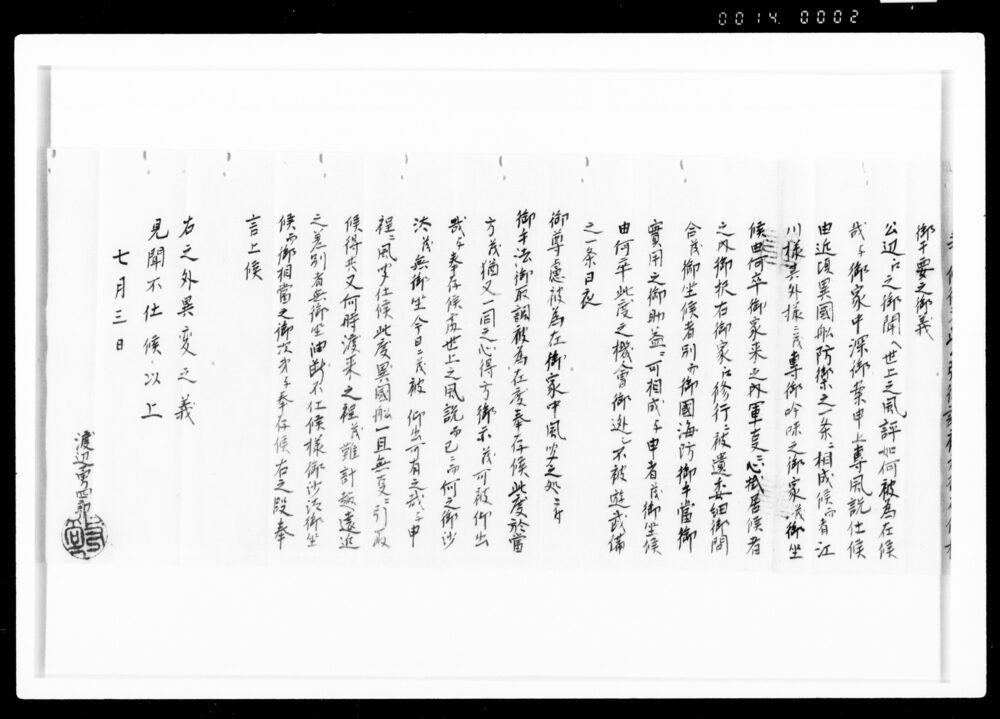 0014 0002
御干要之御義
公辺江之御聞へ世上之風評如何被為在候
哉与御家中深御案申上専風説仕候
由近頃異国船防禦之一条ニ相成候而者江
川様其外様ニ茂専御吟味之御家茂御坐
候由何卒御家来之内軍事ニ心掛居候者
之内御撰右御家江修行ニ被遣委細御問
合茂御坐候者別而御国海防御手当御
実用之御助益ニ可相成与申者茂御坐候
由何卒此度之機会御迯し不被遊武備
之一条日夜
御尊慮被為在御家中風安之処ニ付
御手法御取調被為在度奉存候此度於当
方茂猶又一同之心得方御示茂可被仰出
哉与奉存候処世上之風説而已ニ而何之御沙
汰茂無御坐今日ニ茂被 仰出可有之哉与申
程ニ風安仕候此度異国船一旦無事ニ引取
候得共又何時渡来之程茂難計遠近
之差別者無御坐油断不仕候様御沙汰御坐
候而御相当之御次第与奉存候右之段奉
言上候
右之外異変之義
見聞不仕候以上
七月三日
渡辺勇四郎